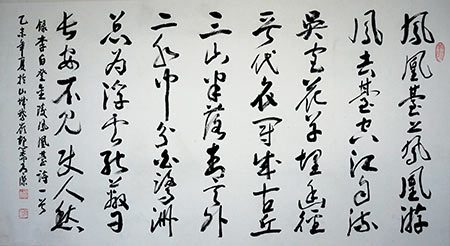 鳳凰臺上鳳凰游
鳳去臺空江自流
吳宮花草埋幽徑
晉代衣冠成古丘
三山半落青天外
二水中分白鷺洲
总为浮云能蔽日
長安不見使人愁
錄李白登金陵鳳凰臺詩一首
乙未年夏於山城